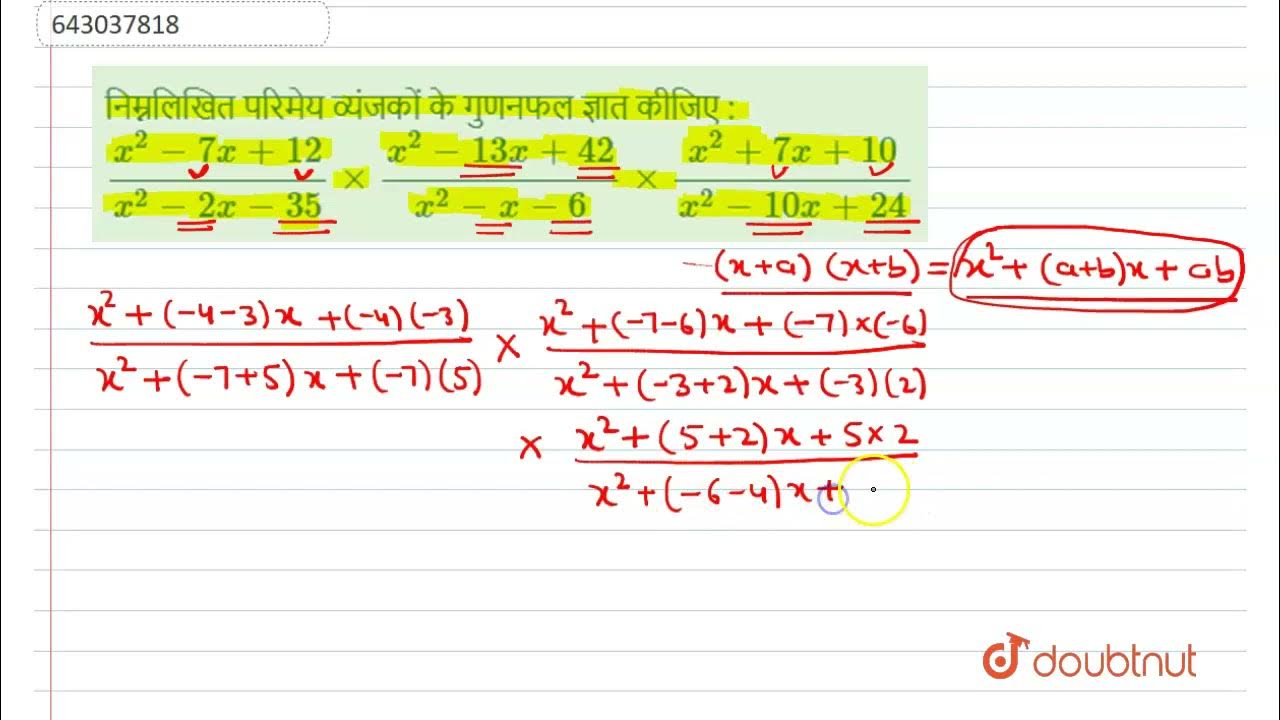 643037818
निम्नलिखित परिमेय व्यंजकों के गुणनफल ज्ञात कीजिए :
x² − 7x + 12 / x² − 2x − 35 × x² − 13x + 42 / x² − x − 6 × x² + 7x + 10 / x² − 10x + 24
(x+a) (x+b) = x² + (a+b)x + ab
x² + (-4-3)x + (-4)(-3) / x² + (-7+5)x + (-7)(5) × x² + (-7-6)x + (-7)×(-6) / x² + (-3+2)x + (-3)(2)
× x² + (5+2)x + 5×2 / x² + (-6-4)x +
doubtnut